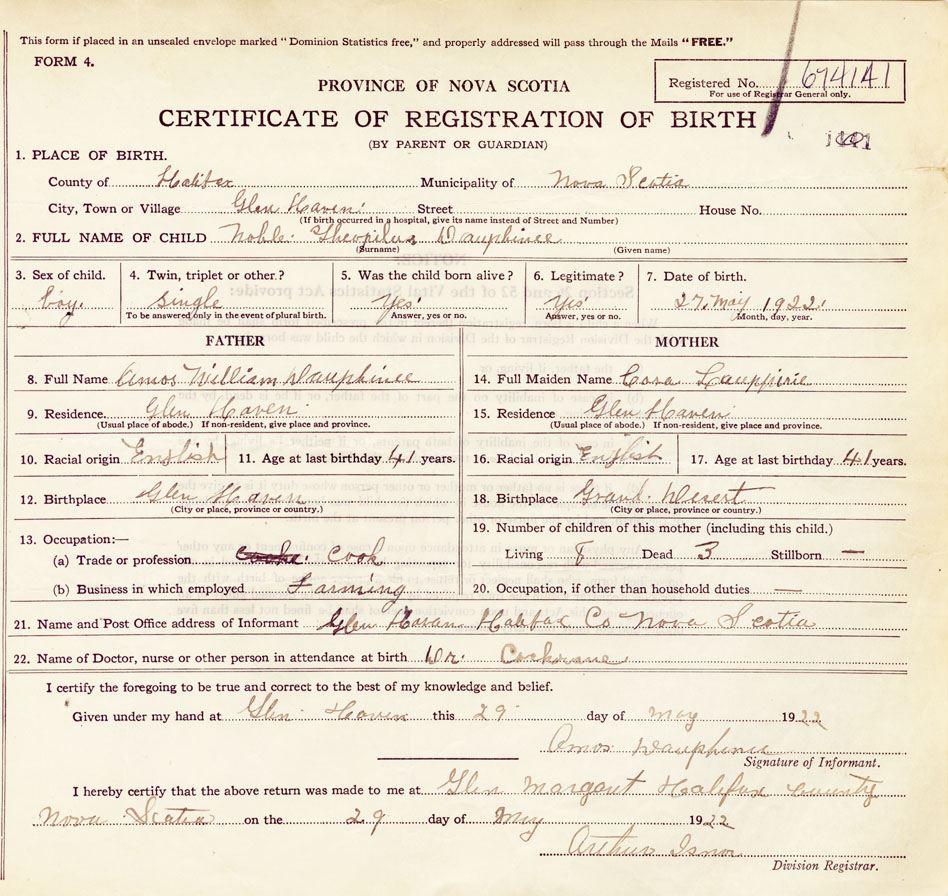 This form if placed in an unsealed envelope marked "Dominion Statistics free," and properly addressed will pass through the Mails "FREE."
FORM 4.
Registered No. 674141
For use of Registrar General only.
PROVINCE OF NOVA SCOTIA
CERTIFICATE OF REGISTRATION OF BIRTH
(BY PARENT OR GUARDIAN)
1. PLACE OF BIRTH.
County of Halifax Municipality of Nova Scotia
City, Town or Village Glen Haven Street House No.
(If birth occurred in a hospital, give its name instead of Street and Number)
2. FULL NAME OF CHILD Noble Theopilus Dauphinee
(Surname) (Given name)
3. Sex of child. 4. Twin, triplet or other? 5. Was the child born alive? 6. Legitimate? 7. Date of birth.
boy. Single Yes Yes 27. May 1922.
To be answered only in the event of plural birth. Answer, yes or no. Answer, yes or no. Month, day, year.
FATHER MOTHER
8. Full Name Amos William Dauphinee 14. Full Maiden Name Cora
9. Residence. Glen Haven 15. Residence Glen Haven
(Usual place of abode.) If non-resident, give place and province. (Usual place of abode.) If non-resident, give place and province.
10. Racial origin English 11. Age at last birthday 41 years. 16. Racial origin English 17. Age at last birthday 41 years.
12. Birthplace Glen Haven 18. Birthplace Grand Desert
(City or place, province or country.) (City or place, province or country.)
13. Occupation:— 19. Number of children of this mother (including this child.)
(a) Trade or profession Cook Living 8 Dead 3 Stillborn —
(b) Business in which employed Farming 20. Occupation, if other than household duties —
21. Name and Post Office address of Informant Glen Havan Halifax Co Nova Scotia
22. Name of Doctor, nurse or other person in attendance at birth Dr. Cochrane
I certify the foregoing to be true and correct to the best of my knowledge and belief.
Given under my hand at Glen Haven this 29 day of May 1922
Amos Dauphinee
Signature of Informant.
I hereby certify that the above return was made to me at Glen Margaut Halifax County
Nova Scotia on the 29 day of May 1922
Arthur Isnor
Division Registrar.